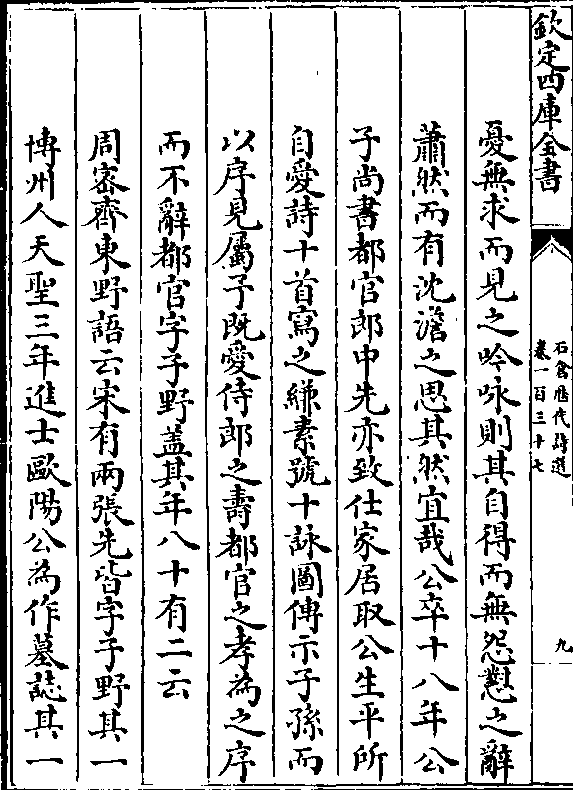 欽定四庫全書
石倉歷代詩選
卷一百三十七
九
憂無求而見之吟咏則其自得而無怨懟之辭
蕭然而有沈澹之思其然宜哉公卒十八年公
子尚書都官郎中先亦致仕家居取公生平所
自愛詩十首寫之縑素號十詠圖傳示子孫而
以序見屬予既愛侍郎之壽都官之孝為之序
而不辭都官字子野蓋其年八十有二云
周密齊東野語云宋有兩張先皆字子野其一
博州人天聖三年進士歐陽公為作墓誌其一